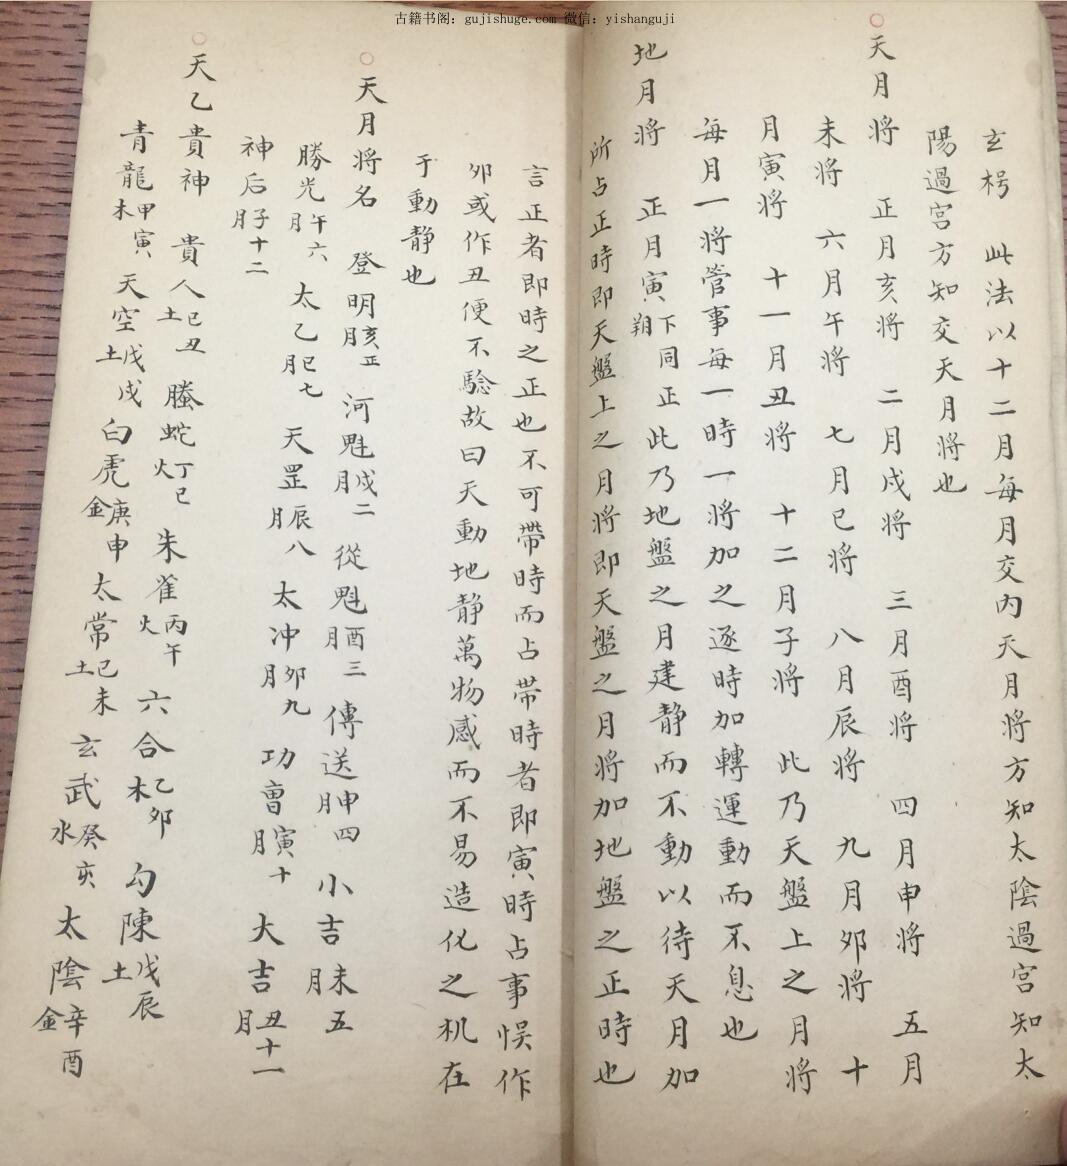 古籍书阁：gujishuge.com 微信：yishanguji
玄枵　此法以十二月每月交内天月将方知太陰過宮知太
陽過宮方知交天月将也
天月将　正月亥将　二月戌将　三月酉将　四月申将　五月
未将　六月午将　七月巳将　八月辰将　九月夘将　十
月寅将　十一月丑将　十二月子将　此乃天盤上之月将
每月一将管事每一時一将加之逐時加轉運動而不息也
地月将　正月寅下同正翔此乃地盤之月建静而不動以待天月加
所占正時即天盤上之月将即天盤之月将加地盤之正時也
言正者即時之正也不可帶時而占帶時者即寅時占事悮作
夘或作丑便不驗故曰天動地静萬物感而不易造化之机在
于動靜也
天月将名　登明亥正月　河魁戌二月　從魁酉三月　傳送申四月　小吉未五月
勝光午六月　太乙巳七月　天罡辰八月　太冲夘九月　功曺寅十月　大吉丑十一月
神后子十二月
天乙貴神　貴人己丑土　螣蛇丁巳火　朱雀丙午火　六合乙夘木　勾陳戊辰土
青龍甲寅木　天空戊戌土　白虎庚申金　太常己未土　玄武癸亥水　太陰辛酉金